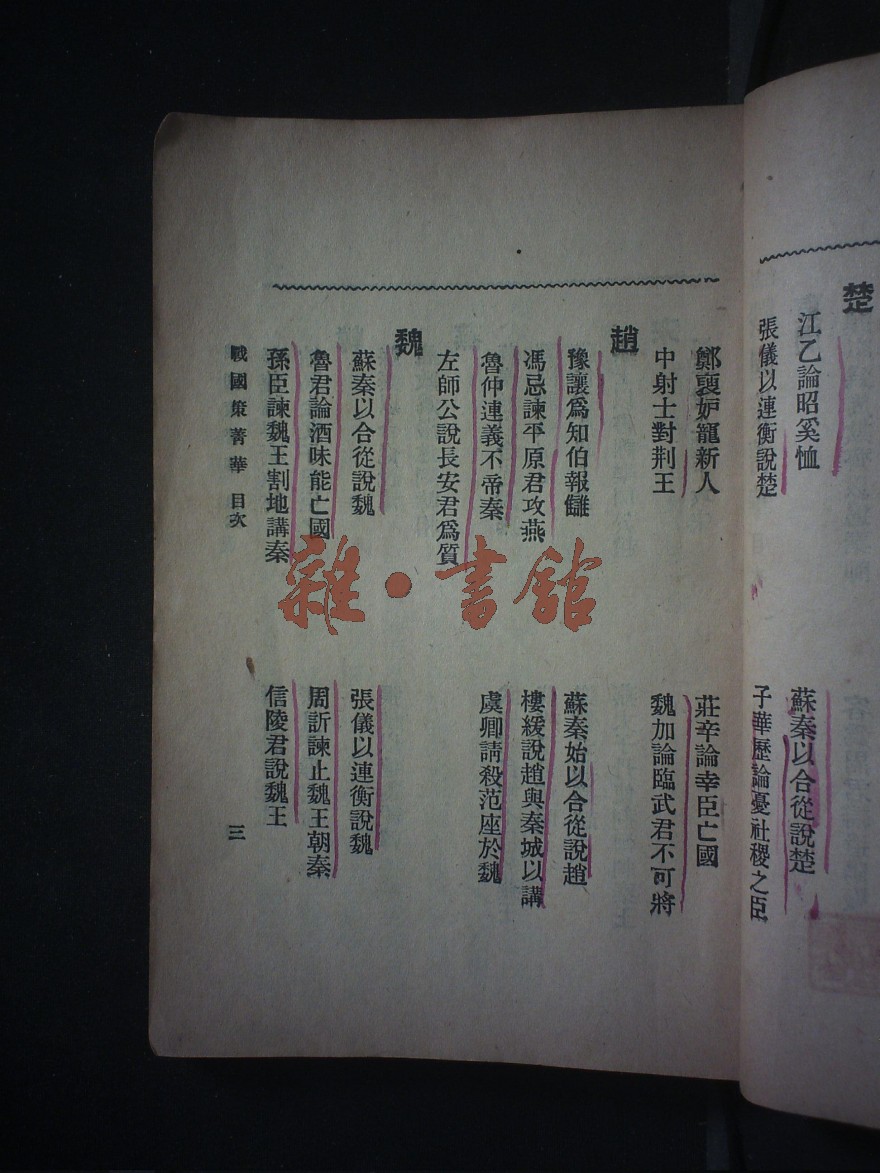 楚
江乙論昭奚恤
蘇秦以合從說楚
張儀以連衡說楚
子華歷論憂社稷之臣
鄭褏妒寵新人
莊辛論幸臣亡國
中射士對荆王
魏加論臨武君不可將
趙
豫讓爲知伯報讎
蘇秦始以合從說趙
馮忌諫平原君攻燕
樓緩說趙與秦城以講
魯仲連義不帝秦
虞卿請殺范座於魏
左師公說長安君爲質
魏
蘇秦以合從說魏
張儀以連衡說魏
魯君論酒味能亡國
周訢諫止魏王朝秦
孫臣諫魏王割地講秦
信陵君說魏王
戰國策菁華 目次
三
雜·書館